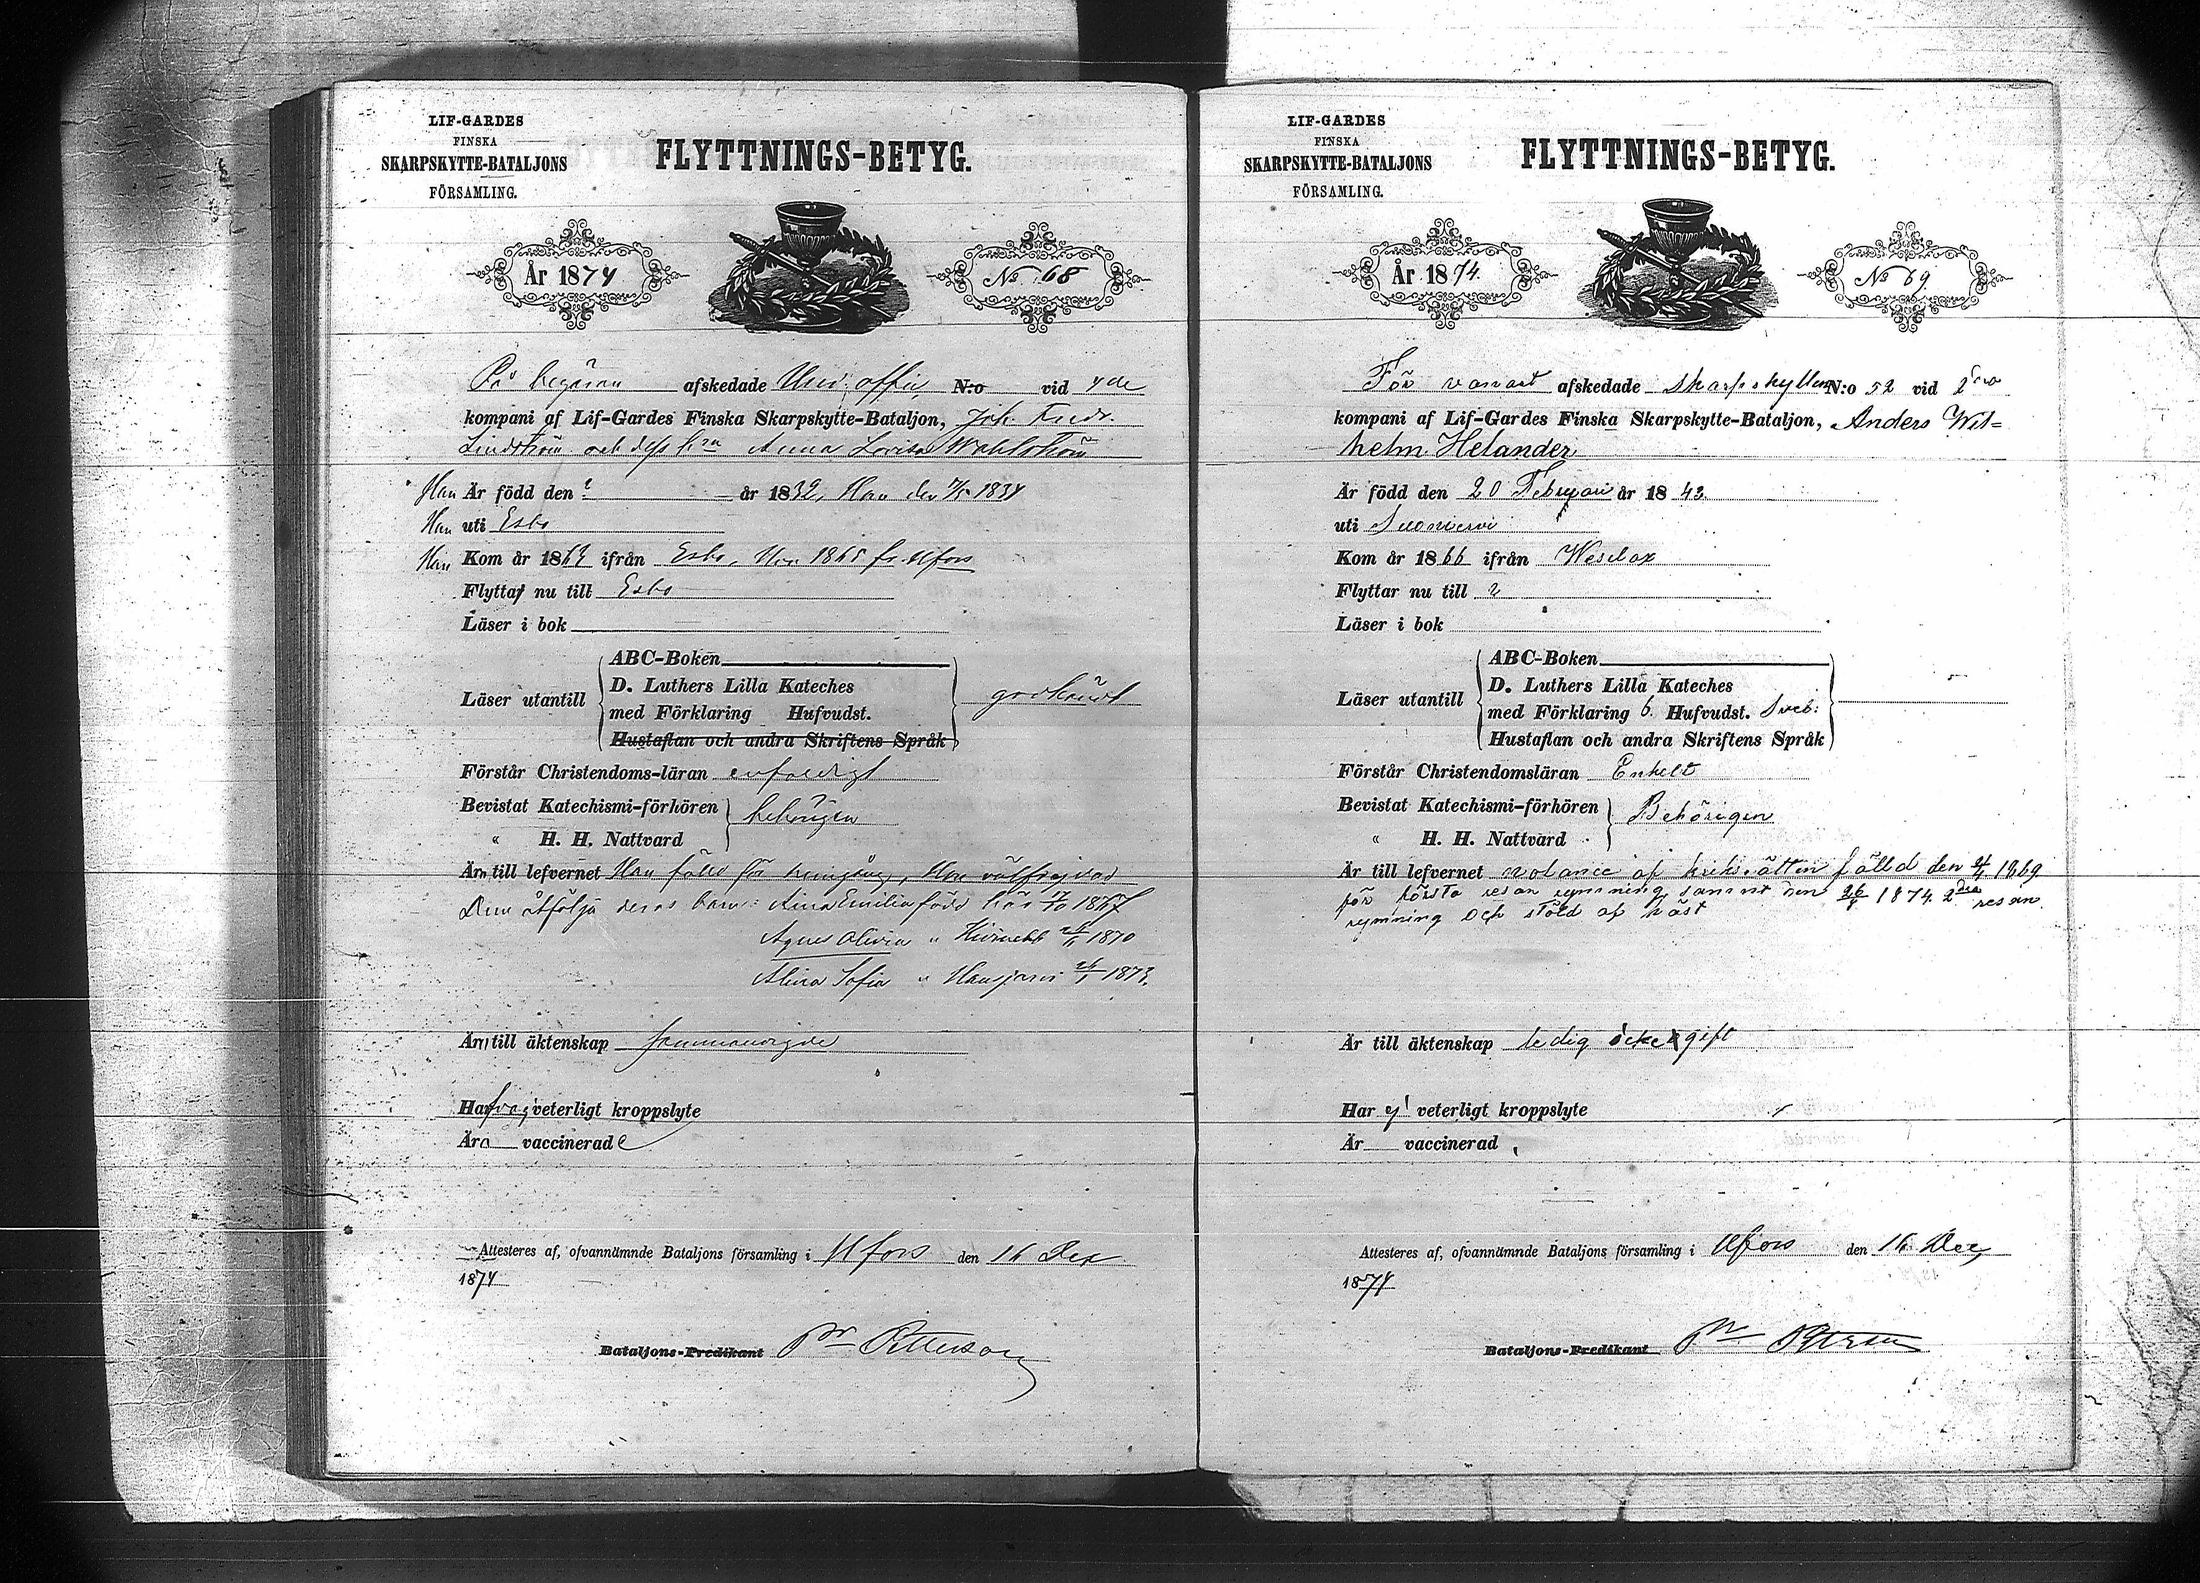 LIF-GARDES
FINSKA
SKARPSKYTTE-BATALJONS
FÖRSAMLING.
FLYTTNINGS-BETYG.
År 1874
No 68
På begäran afskedade Und: offic, N:o vid 4de
kompani af Lif-Gardes Finska Skarpskytte-Bataljon, Joh. Fredr.
Lindström och dess Anna Lovisa Wahlström
Han Är född den ? år 1832, Hon den 1834
Han uti Esbo
Han Kom år 1863 ifrån Esbo, Hon 1865 fr. Hfors
Flyttar nu till Esbo
Läser i bok
Läser utantill
ABC-Boken
D. Luthers Lilla Kateches
med Förklaring Hufvudst.
Hustaflan och andra Skriftens Språk
godkändt
Förstår Christendoms-läran enfaldigt
Bevistat Katechismi-förhören
" H. H. Nattvard
behörigen
Äro till lefvernet Han fäld för, Hon välfrejdad
Dem åtfölja deras barn: Aina Emilia född här 1867
Agnes Olivia " 1870
Alina Sofia " Hausjärvi 1873.
Äro till äktenskap sammanvigde
Hafva ej veterligt kroppslyte
Äro vaccinerade
Attesteres af, ofvannämnde Bataljons församling i Hfors den 16 Dec
1874
Bataljons-Predikant Petterson
LIF-GARDES
FINSKA
SKARPSKYTTE-BATALJONS
FÖRSAMLING.
FLYTTNINGS-BETYG.
År 1874.
No 69.
För vanart afskedade skarpskytten N:o 52 vid
kompani af Lif-Gardes Finska Skarpskytte-Bataljon, Anders Wil=
helm Helander
Är född den 20 Februari år 1843.
uti Suoniervi
Kom år 1866 ifrån Weselax
Flyttar nu till ?
Läser i bok
Läser utantill
ABC-Boken
D. Luthers Lilla Kateches
med Förklaring 6. Hufvudst. Sveb:
Hustaflan och andra Skriftens Språk
Förstår Christendomsläran Enkelt
Bevistat Katechismi-förhören
" H. H. Nattvard
Behörigen
Är till lefvernet af krigsrätten fälld den 1869
för första resan rymning samt den 26 1874. 2dra resan
rymning och stöld af häst
Är till äktenskap ledig icke gift
Har ej veterligt kroppslyte
Är vaccinerad
Attesteres af, ofvannämnde Bataljons församling i Hfors den 16 Dec,
1874
Bataljons-Predikant